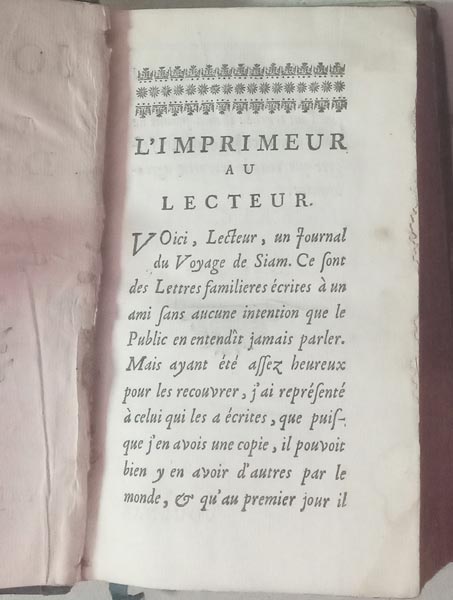 L'IMPRIMEUR
AU
LECTEUR.
VOici, Lecteur, un Journal
du Voyage de Siam. Ce ſont
des Lettres familieres écrites à un
ami ſans aucune intention que le
Public en entendît jamais parler.
Mais ayant été aſſez heureux
pour les recouvrer, j'ai repréſenté
à celui qui les a écrites, que puiſ-
que j'en avois une copie, il pouvoit
bien y en avoir d'autres par le
monde, & qu'au premier jour il